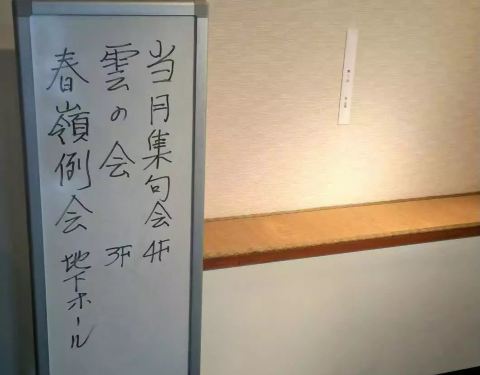 当月集句会 4F
雲の会 3F
春嶺例会 地下ホール